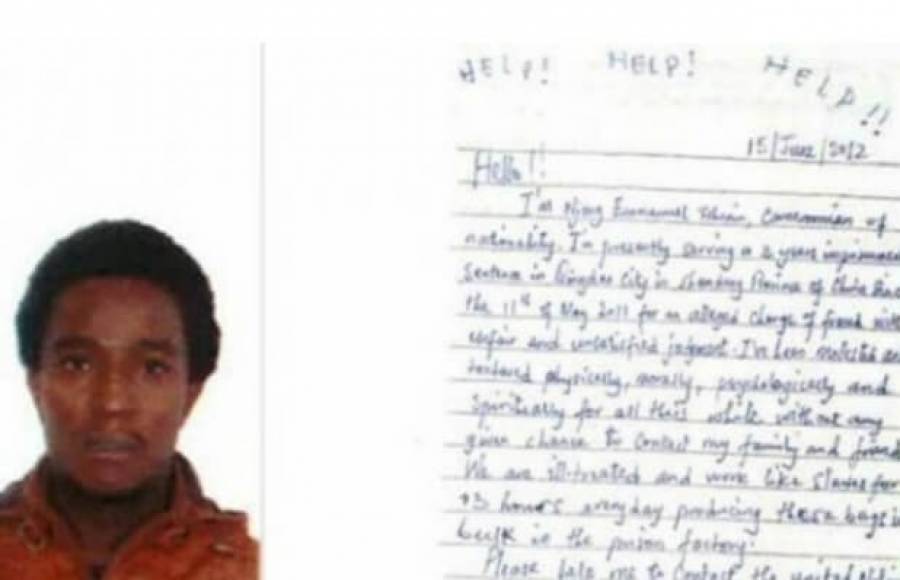 HELP! HELP! HELP!!
15/June/2012
Hello!!
I'm Njong Emmanuel, Cameroonian of
nationality. I'm presently serving a 3 years
sentence in City in Shandong of China
the 11th of May 2011 for an alleged charge of fraud
unfair and judgment. I've been molested
tortured physically, morally, psychologically and
spiritually for all this while without any
given chance to contact my family and
We are ill-treated and work like slaves for
13 hours everyday producing these bags in
bulk in the prison factory.
Please help me to contact the